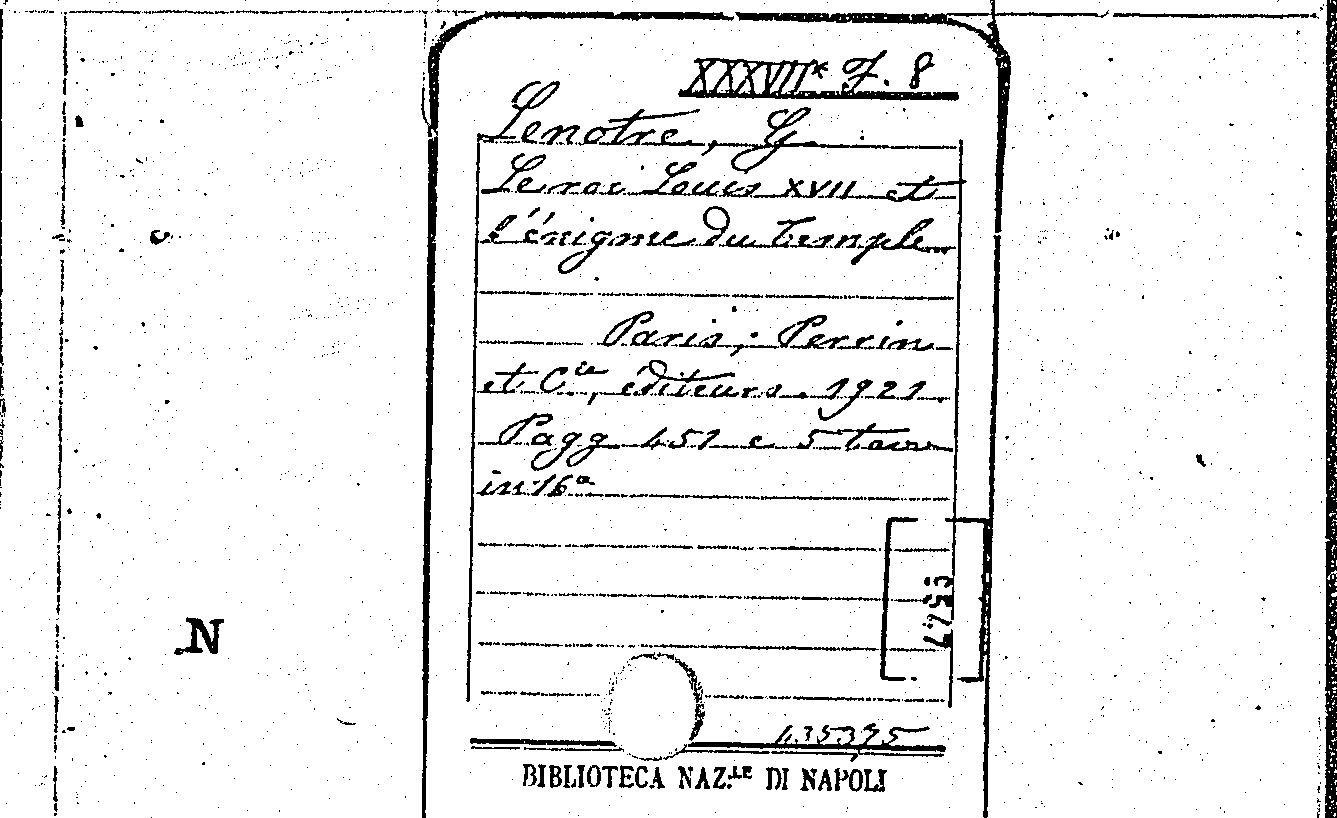 XXXVII* F. 8
Lenotre, G.
Le roi Louis XVII et
l'énigme du Temple
Paris; Perrin
et Cie, éditeurs. 1921.
Pagg 451 e 5 tavv
in 16°
N
435395
BIBLIOTECA NAZ.LE DI NAPOLI